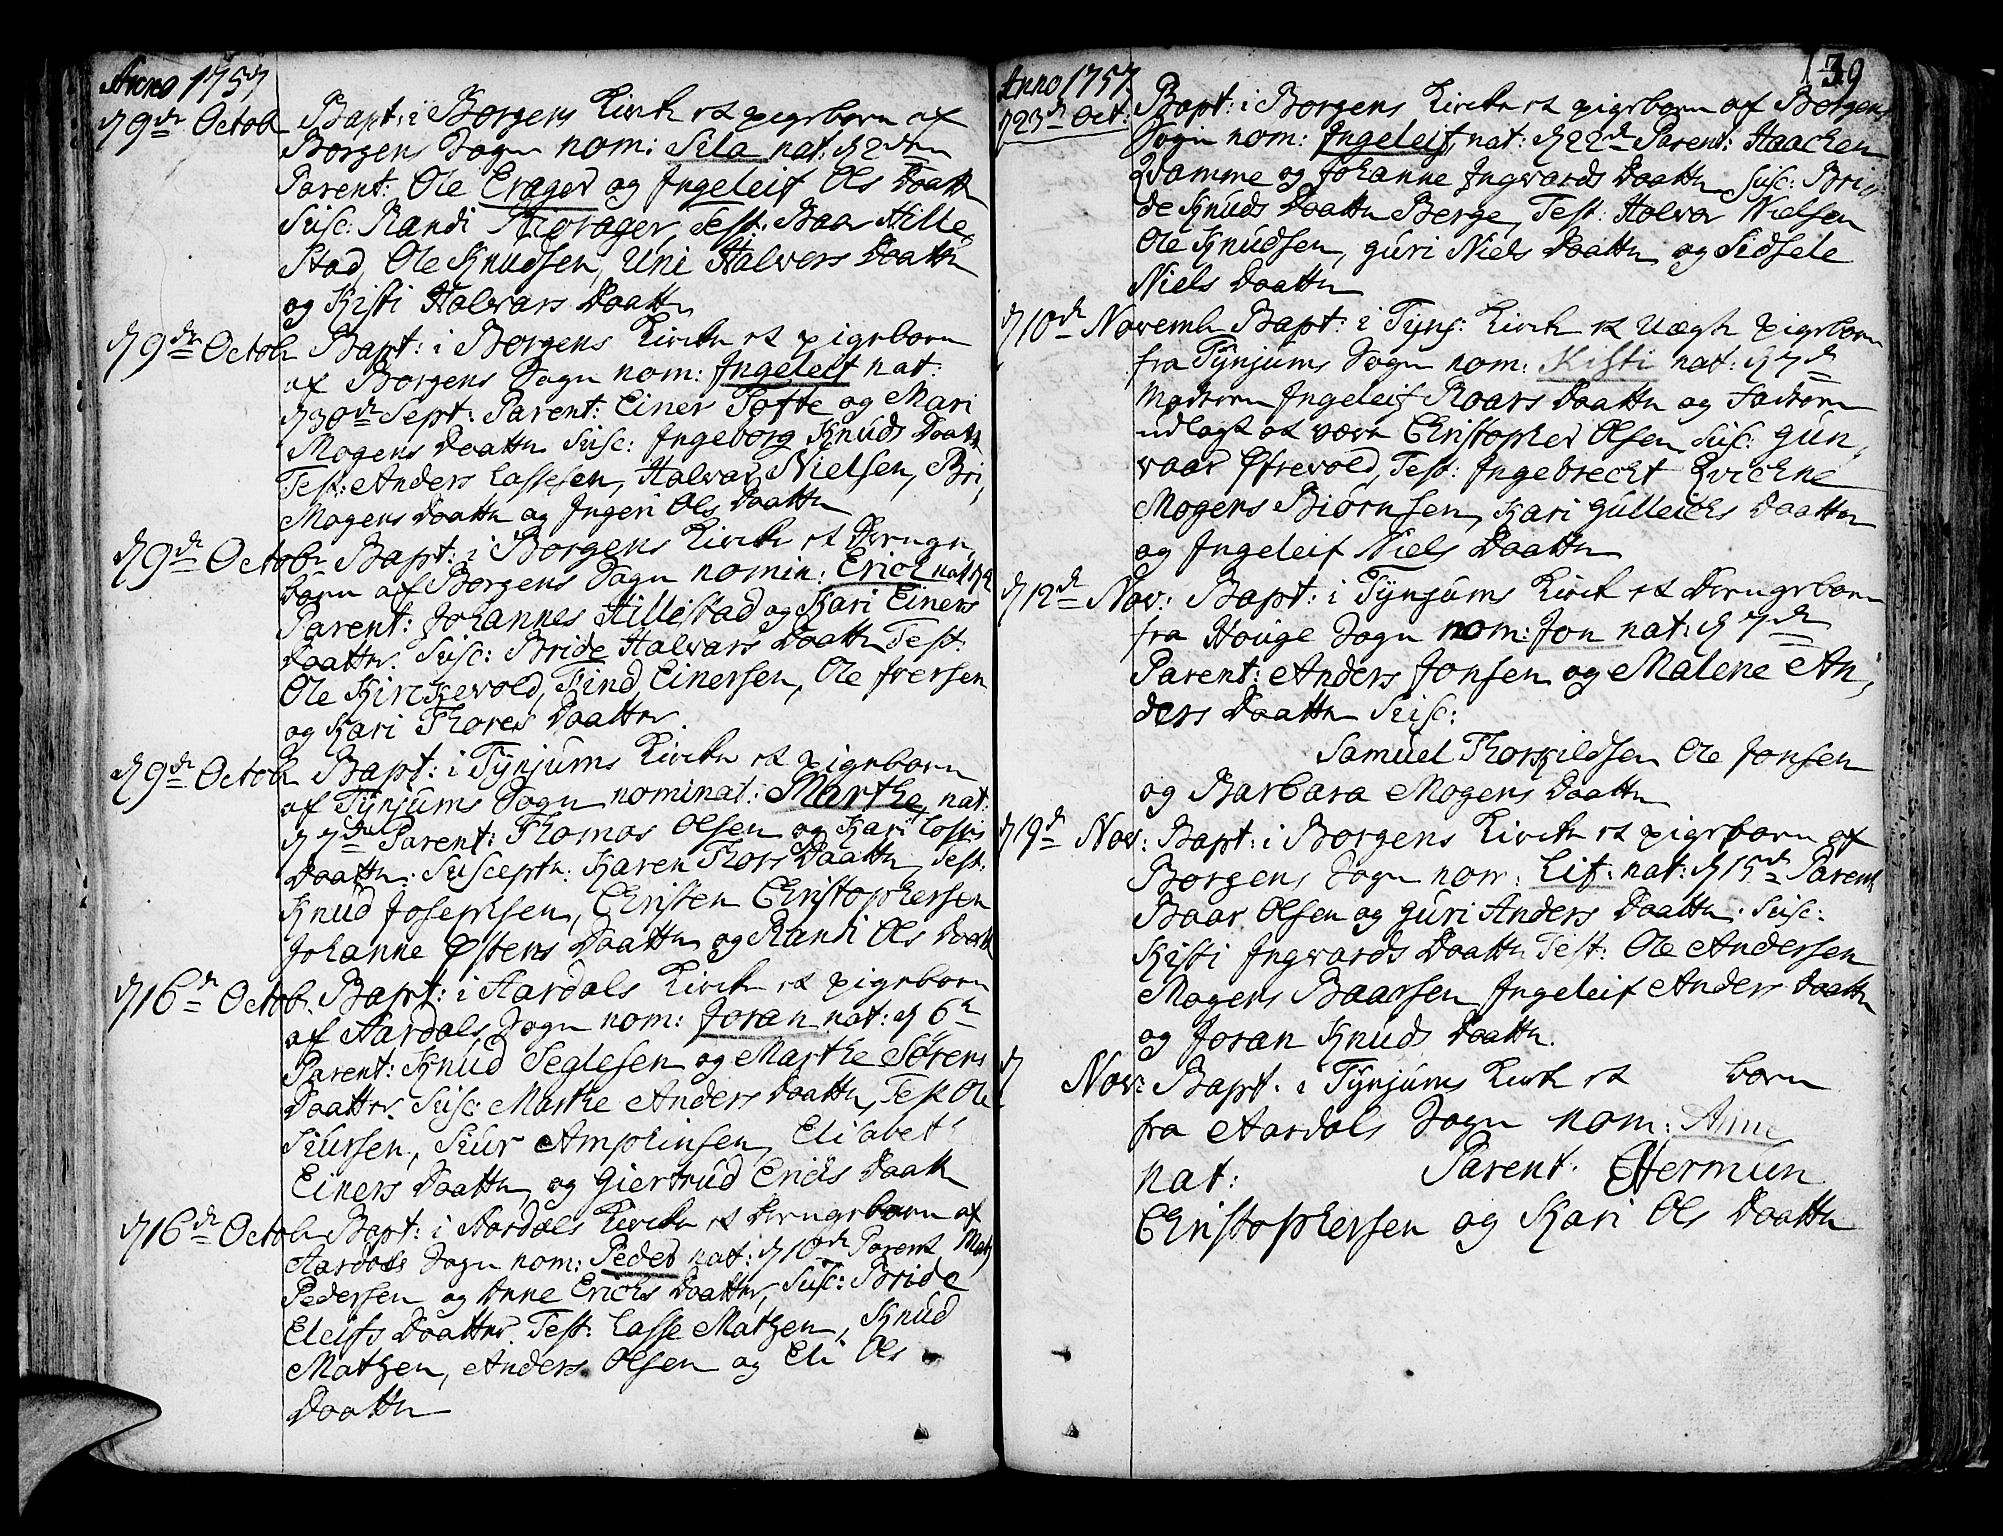 Anno 1757
d 9de Octobr Bapt: i Borgens Kircke et pigebarn af
Borgens Sogn nom: Sila nat: d 2den
Parent: Ole Erager og Jngeleif Ols Daatter
Susc: Randi Test: Baar Hille,
stad, Ole Knudsen, Uni Halvors Daatter
og Kisti Halvars Daatter
d 9de Octobr Bapt: i Borgens Kircke et pigebarn
af Borgens Sogn nom: Jngeleif nat:
d 30de Sept: Parent: Einer Tofte og Mari
Mogens Daatter Susc: Jngeborg Knuds Daatter
Test: Anders Lassesen, Halvar Nielsen, Bri,
Mogens Daatter og Jngeri Ols Daatter
d 9de Octobr Bapt: i Borgens Kircke et Drenge,
barn af Borgens Sogn nomin: Erich nat
Parent: Johannes Hillestad og Kari Einers
Daatter. Susc: Bride Halvars Daatter Test:
Ole Kirckevold, Find Einersen, Ole Jversen
og Kari Thores Daatter.
d 9de Octobr Bapt: i Tÿnjums Kircke et pigebarn
af Tÿnjums Sogn nominat: Marthe, nat:
d 7de Parent: Thomas Olsen og Kari
Daatter: Suscept: Karen Thors Daatter, Test:
Knud Josephsen, Christen Christophersen
Johanne Østens Daatter og Randi Ols Daatter
d 16de Octob. Bapt: i Aardals Kircke et pigebarn
af Aardals Sogn nom: Joran nat: d 6te
Parent: Knud Seglesen og Marthe Sørens
Daatter. Susc: Marthe Anders Daatter, Test Ole
Siursen, Siur Amphinsen, Elisabet
Einers Daatter, og Giertrud Erichs Daatter
d 16de Octobr Bapt: i Aardals Kircke et Drengebarn af
Aardals Sogn nom: Peder nat: d 10de Parent Matz
Pedersen og Anne Erichs Daatter, Susc: Bride
Eleifs Daatter. Test: Lasse Matzen, Knud
Matzen, Anders Olsen og Eli Ols
Daatter
139
Anno 1757.
d 23de Oct: Bapt: i Borgens Kircke et pigebarn af Borgens
Sogn nom: Jngeleif, nat: d 22de Parent: Haachen
Qvamme og Johanne Jngvards Daatter, Susc: Bri,
de Knuds Daatter Berge, Test: Halvor Nielsen
Ole Knudsen, guri Niels Daatter og Sidsele
Niels Daatter
d 10de Novemb Bapt: i Tÿnj: Kircke et Uægte pigebarn
fra Tÿnjums Sogn nom: Kisti nat: d 7de
Moderen Jngeleif Roars Daatter og Faderen
udlagt at være Christopher Olsen, Susc: gun,
vaar Øfrevold, Test: Jngebrecht Qvichne
Mogens Biørnsen, Kari gulleichs Daatter
og Jngeleif Niels Daatter
d 12de Nov: Bapt: i Tÿnjums Kirck et Drengebarn
fra Houge Sogn nom: Jon nat: d 7de
Parent: Anders Jonsen og Malene An,
ders Daatter Susc:
Samuel Thorkildsen Ole Jonsen
og Barbara Mogens Daatter
d 19de Nov: Bapt: i Borgens Kircke et pigebarn af
Borgens Sogn nom: Lif: nat: d 15de Parent
Baar Olsen og Guri Anders Daatter. Susc:
Kisti Jngvards Daatter Test: Ole Andersen
Mogens Baarsen, Jngeleif Anders Daatter
og Joran Knuds Daatter.
d Nov: Bapt. i Tÿnjums Kircke et barn
fra Aardals Sogn nom: Anne
nat: Parent. Hermun
Christophersen og Kari Ols Daatter